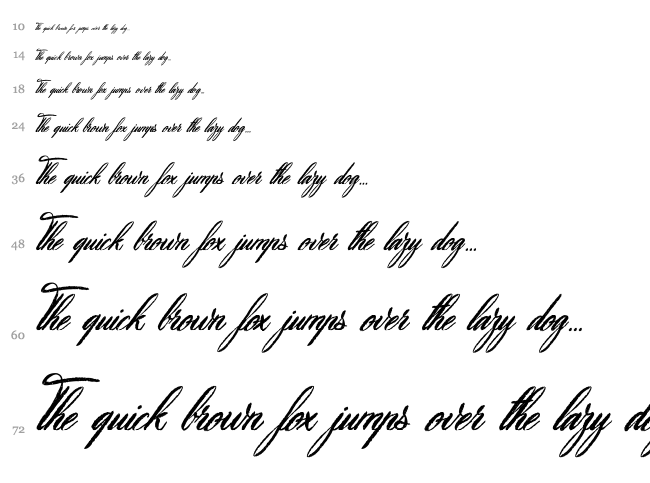 10 The quick brown fox jumps over the lazy dog...
14 The quick brown fox jumps over the lazy dog...
18 The quick brown fox jumps over the lazy dog...
24 The quick brown fox jumps over the lazy dog...
36 The quick brown fox jumps over the lazy dog...
48 The quick brown fox jumps over the lazy dog...
60 The quick brown fox jumps over the lazy dog...
72 The quick brown fox jumps over the lazy do